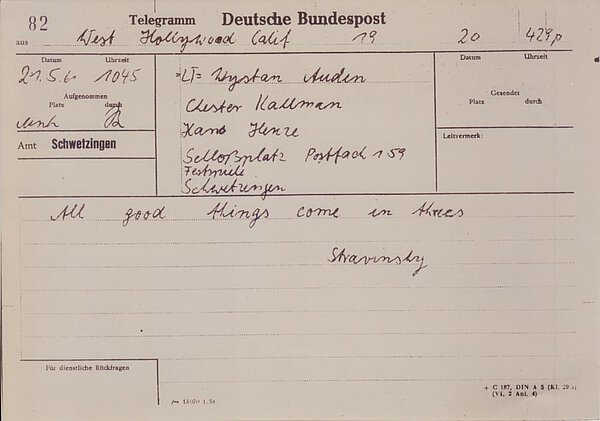 82 Telegramm Deutsche Bundespost
aus West Hollywood Calif 19 20 429p
Datum Uhrzeit
21.5.61 1045
Aufgenommen
Platz durch
Amt Schwetzingen
=LT= Wystan Auden
Chester Kallman
Hans Henze
Schloßplatz Postfach 159
Festspiele
Schwetzingen
Datum Uhrzeit
Gesendet
Platz durch
Leitvermerk:
All good things come in threes
Stravinsky
Für dienstliche Rückfragen
+ C 187, DIN A 5 (Kl. 29
(VI, 2 Anl. 4)